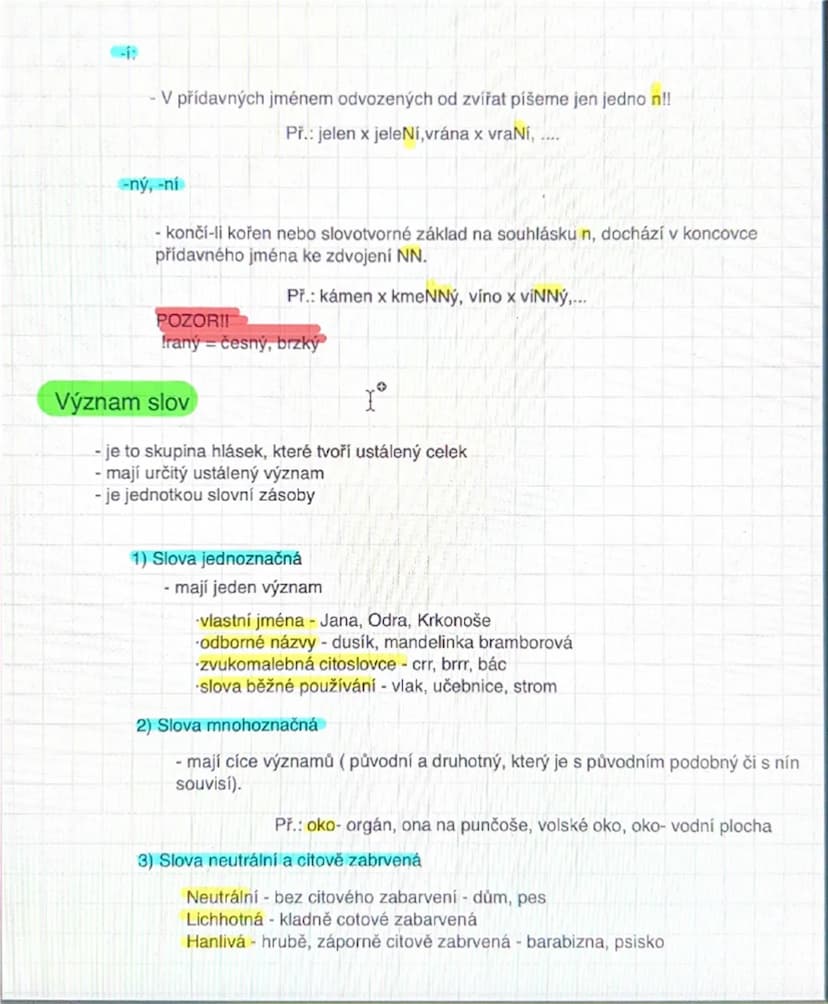 -í:
- V přídavných jménem odvozených od zvířat píšeme jen jedno n!!
Př.: jelen x jeleNí,vrána x vraNí, ....
-ný, -ní
- končí-li kořen nebo slovotvorné základ na souhlásku n, dochází v koncovce
přídavného jména ke zdvojení NN.
Př.: kámen x kmeNNý, víno x viNNý,...
POZOR!!
!raný = česný, brzký
Význam slov
- je to skupina hlásek, které tvoří ustálený celek
- mají určitý ustálený význam
- je jednotkou slovní zásoby
1) Slova jednoznačná
- mají jeden význam
·vlastní jména - Jana, Odra, Krkonoše
·odborné názvy - dusík, mandelinka bramborová
·zvukomalebná citoslovce - crr, brrr, bác
·slova běžné používání - vlak, učebnice, strom
2) Slova mnohoznačná
- mají cíce významů ( původní a druhotný, který je s původním podobný či s nín
souvisí).
Př.: oko- orgán, ona na punčoše, volské oko, oko- vodní plocha
3) Slova neutrální a citově zabrvená
Neutrální - bez citového zabarvení - dům, pes
Lichhotná - kladně cotové zabarvená
Hanlivá - hrubě, záporně citově zabrvená - barabizna, psisko